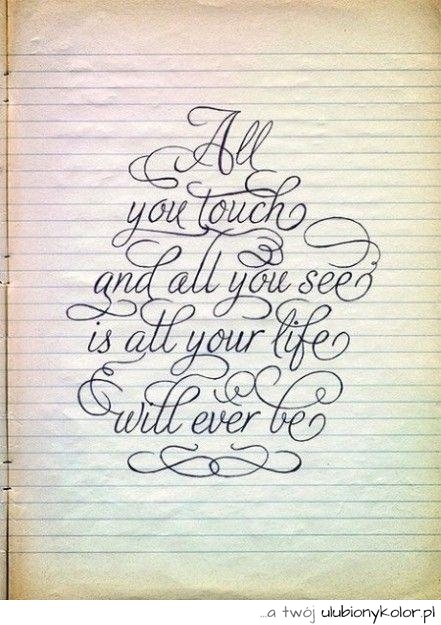 All
you touch
and all you see
is all your life
will ever be
...a twój ulubionykolor.pl